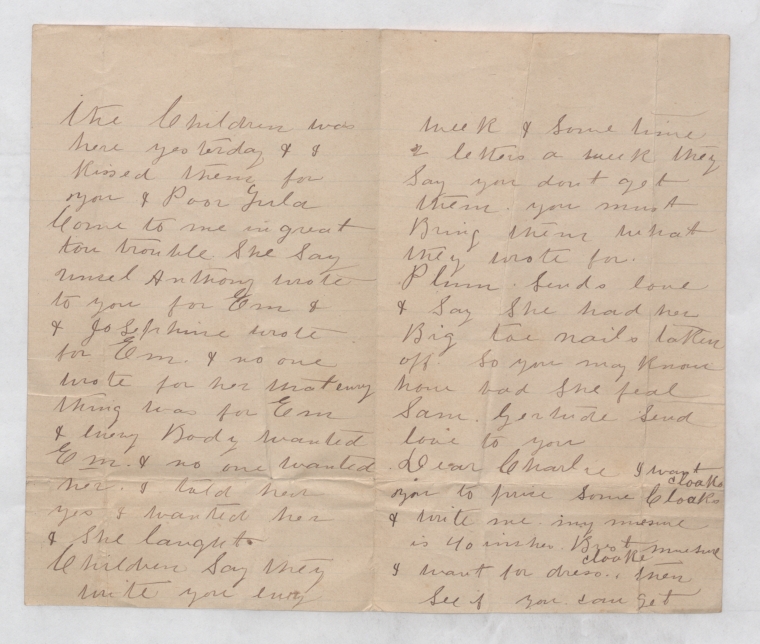 the Children was
here yesterday & I
Kissed them for
you & Poor Gula
Come to me in great
trouble She Say
unsel Anthony wrote
to you for Em &
& Josephine wrote
for Em. & no one
wrote for her that evry
thing was for Em
& Every Body wanted
Em. & no one wanted
her. I told her
yes I wanted her
& She laught
Children Say they
write you evry
week & Some time
2 letters a week they
Say you dont get
them. you must
Bring them what
they wrote for.
Plum Sends love
& Say She had her
Big toe nails taken
off. So you may Know
how bad She feal
Sam. Gertude Send
love to you
Dear Charlie I want
cloaks
you to price Some Cloaks
& write me. my mesure
is 40 inches. Bust mesure
cloake
I want for dress., then
See if you can get